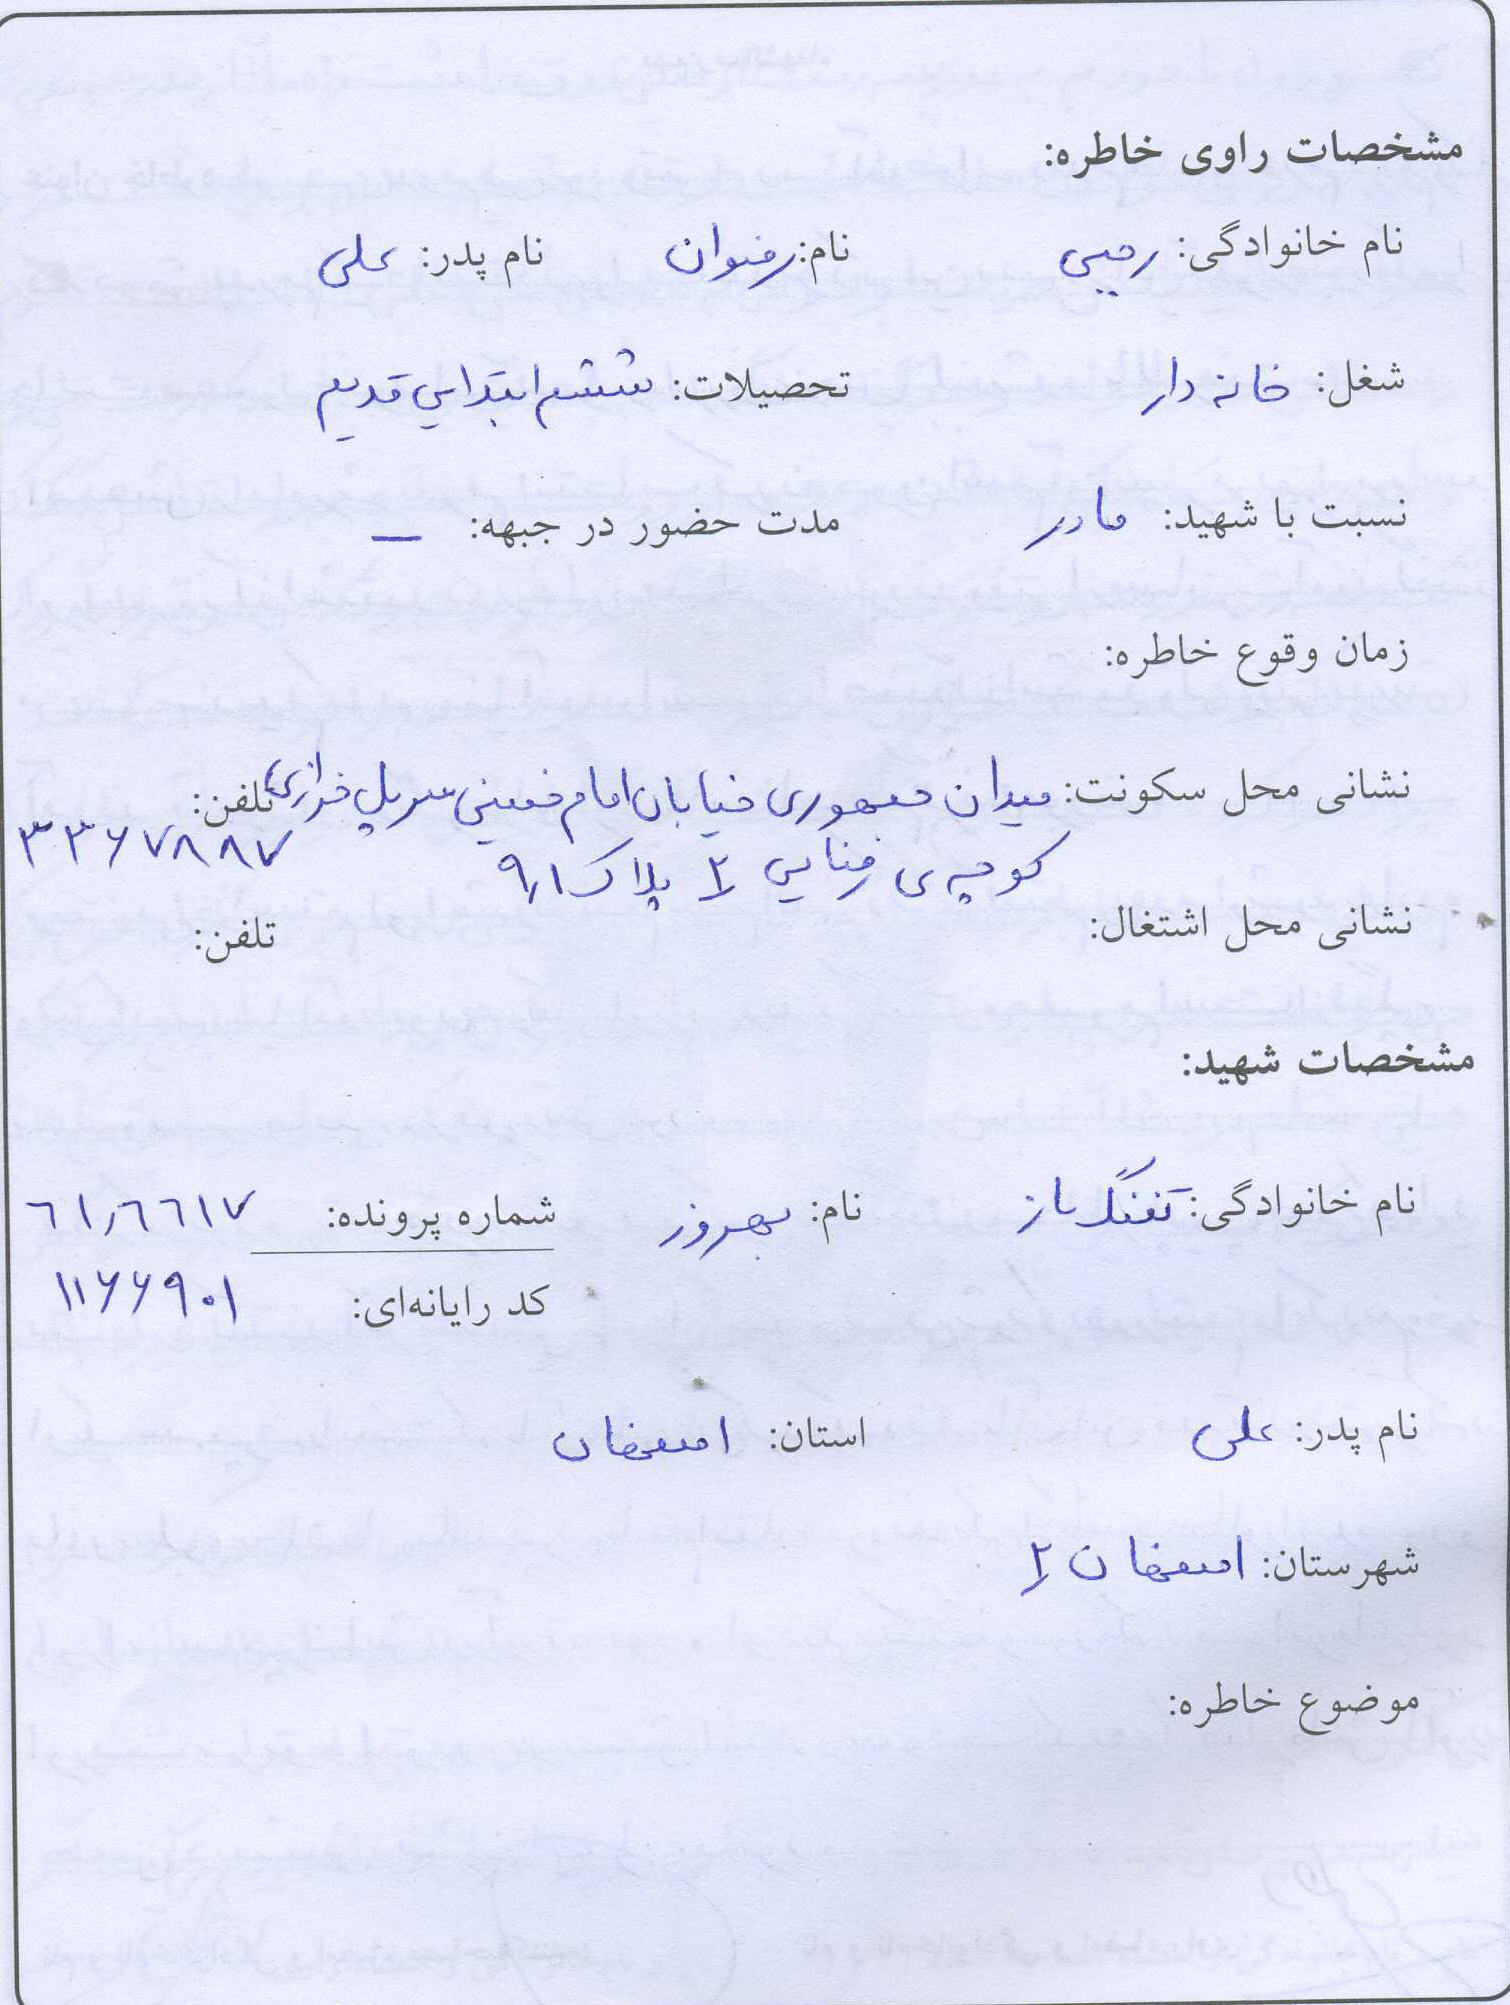 مشخصات راوی خاطره:
نام خانوادگی: رجبی نام: رضوان نام پدر: علی
شغل: خانه دار تحصیلات: ششم ابتدایی قدیم
نسبت با شهید: مادر مدت حضور در جبهه: –
زمان وقوع خاطره:
نشانی محل سکونت: میدان جمهوری خیابان امام خمینی سرپل خرازی تلفن:
کوچه ی رضایی ۲ پلاک ۹۱ ۳۳۶۷۸۸۷
نشانی محل اشتغال: تلفن:
مشخصات شهید:
نام خانوادگی: تفنگ ساز نام: بهروز شماره پرونده: ۶۱٫۶۶۱۷
کد رایانه‌ای: ۱۱۶۶۹۰۱
نام پدر: علی استان: اصفهان
شهرستان: اصفهان ۲
موضوع خاطره: